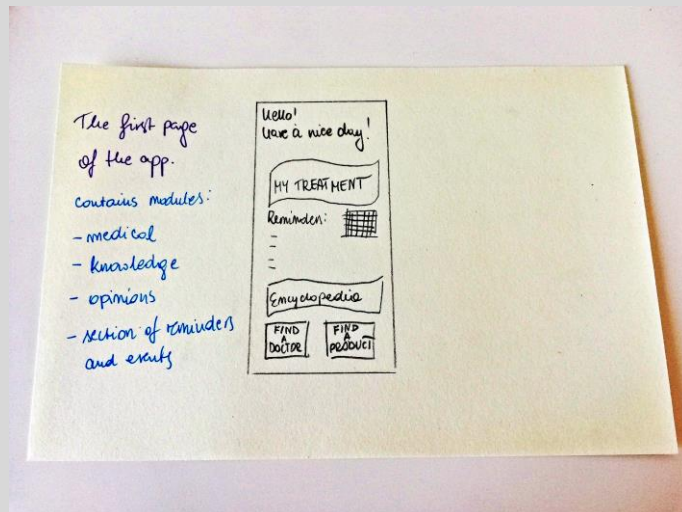 The first page
of the app.
contains modules:
- medical
- knowledge
- opinions
- section of reminders
and events
Hello!
Have a nice day!
MY TREATMENT
Reminders:
-
-
-
Encyclopedia
FIND
A
DOCTOR
FIND
A
PRODUCT